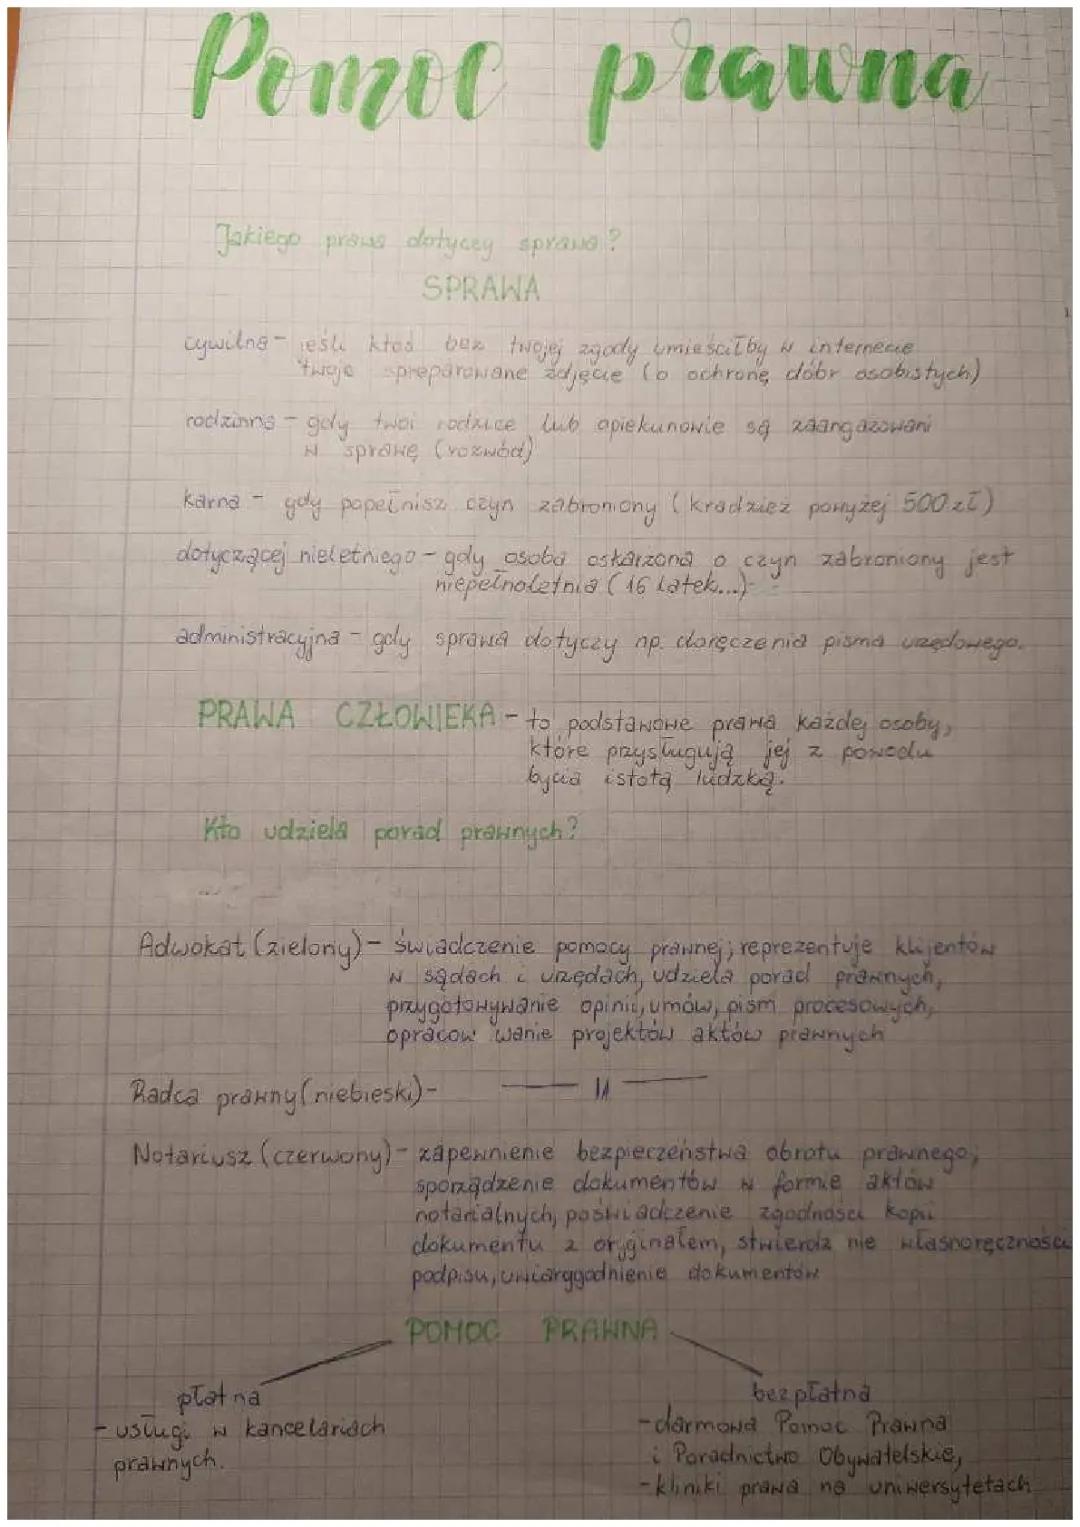 Pomoc prawna
Jakiego prawa dotyczy sprawa?
SPRAWA
cywilna - jeśli ktoś bez twojej zgody umieściłby w internecie
twoje spreparowane zdjęcie (o ochronę dóbr osobistych)
rodzinna - gdy twoi rodzice lub opiekunowie są zaangażowani
w sprawę (rozwód)
karna - gdy popełnisz czyn zabroniony (kradzież powyżej 500 zł)
dotyczącej nieletniego - gdy osoba oskarżona o czyn zabroniony jest
niepełnoletnia (16 latek...)
administracyjna - gdy sprawa dotyczy np. doręczenia pisma urzędowego.
PRAWA CZŁOWIEKA - to podstawowe prawa każdej osoby,
które przysługują jej z powodu
bycia istotą ludzką.
Kto udziela porad prawnych?
Adwokat (zielony) - świadczenie pomocy prawnej; reprezentuje klijentów
w sądach i urzędach, udziela porad prawnych,
przygotowywanie opinii, umów, pism procesowych,
opracow wanie projektów aktów prawnych
Radca prawny (niebieski) - —— 11 ——
Notariusz (czerwony) - zapewnienie bezpieczeństwa obrotu prawnego;
sporządzenie dokumentów w formie aktów
notarialnych, poświadczenie zgodności kopii
dokumentu z oryginałem, stwierdz nie własnoręczności
podpisu, uwiarygodnienie dokumentów
POMOC PRAWNA
płatna bezpłatna
- usługi w kancelariach - darmowa Pomoc Prawna
prawnych. i Poradnictwo Obywatelskie,
- kliniki prawa na uniwersytetach